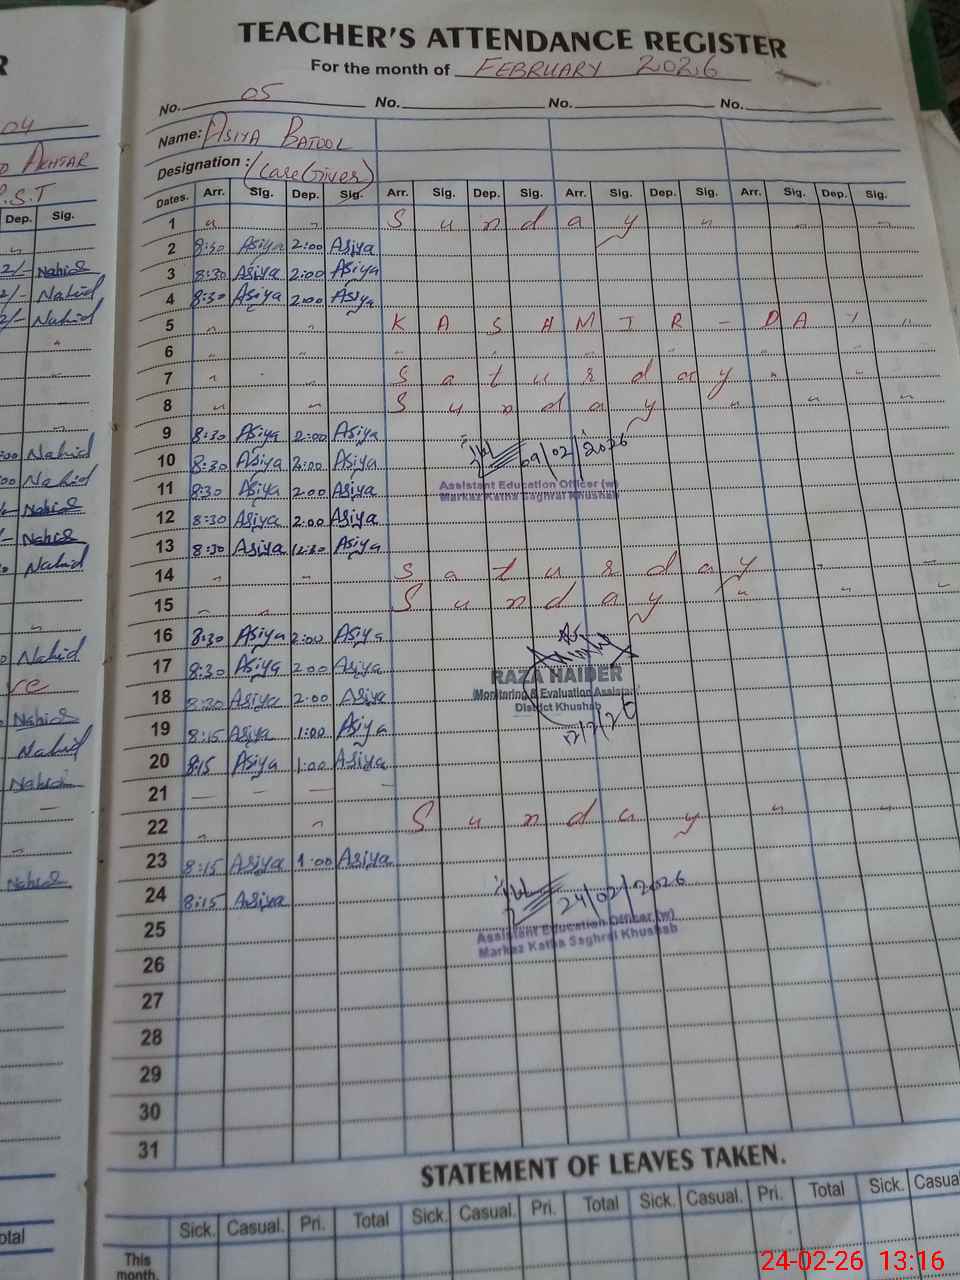 TEACHER'S ATTENDANCE REGISTER
For the month of FEBRUARY 2026
No. 05 No. No. No.
Name: ASIYA BATOOL
Designation: (Care Giver)
Dates. Arr. Sig. Dep. Sig. Arr. Sig. Dep. Sig. Arr. Sig. Dep. Sig. Arr. Sig. Dep. Sig.
1 " " Sunday " "
2 8:30 Asiya 2:00 Asiya
3 8:30 Asiya 2:00 Asiya
4 8:30 Asiya 2:00 Asiya
5 " " KASHMIR - DAY "
6 " " " " " " "
7 " " Saturday " "
8 " " Sunday " " "
9 8:30 Asiya 2:00 Asiya
10 8:30 Asiya 2:00 Asiya
09/02/2026
Assistant Education Officer (w)
Markaz Katha Saghral Khushab
11 8:30 Asiya 2:00 Asiya
12 8:30 Asiya 2:00 Asiya
13 8:30 Asiya 12:30 Asiya
14 " " Saturday " "
15 " " Sunday " " "
16 8:30 Asiya 2:00 Asiya
17 8:30 Asiya 2:00 Asiya
RAZA HAIDER
Monitoring & Evaluation Assista
District Khushab
18 8:30 Asiya 2:00 Asiya
19 8:15 Asiya 1:00 Asiya
20 8:15 Asiya 1:00 Asiya
21 — — — —
22 " " Sunday " "
23 8:15 Asiya 1:00 Asiya
24 8:15 Asiya
24/02/2026
Assistant Education Officer (w)
Markaz Katha Saghral Khushab
25
26
27
28
29
30
31
STATEMENT OF LEAVES TAKEN.
Sick. Casual. Pri. Total Sick. Casual. Pri. Total Sick. Casual. Pri. Total Sick. Casual
This
month.
04
AKHTAR
P.S.T
Dep. Sig.
"
2/- Nahid
2/- Nahid
2/- Nahid
"
"
"
Nahid
Nahid
Nahid
Nahid
Nahid
"
Nahid
Nahid
Nahid
Nahid
—
"
Nahid
otal
24-02-26 13:16